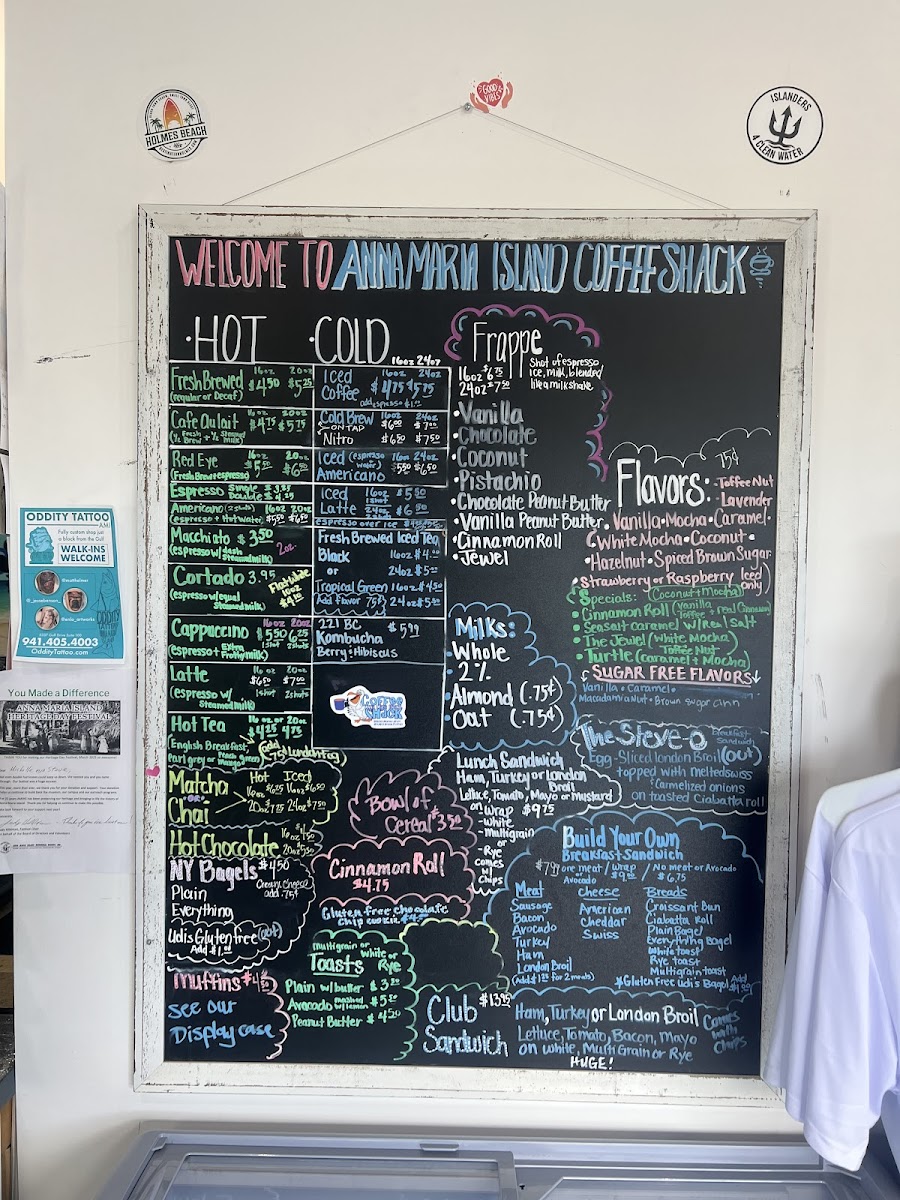 GOOD VIBES
HOLMES BEACH
ISLANDERS
4 CLEAN WATER
WELCOME TO ANNA MARIA ISLAND COFFEE SHACK
•HOT
Fresh Brewed 16oz $4.50 20oz $5.25
(regular or Decaf)
Cafe Au lait 16oz $4.75 20oz $5.75
(½ Fresh Brew + ½ Steamed milk)
Red Eye 16oz $5.50 20oz $6.50
(Fresh Brew + espresso)
Espresso Single $3.25
Double $4.25
Americano (2 shots) 16oz 20oz
(espresso + Hot water) $5.50 $6.50
Macchiato $3.50
(espresso w/ dash steamed milk) 2oz
Cortado 3.95
(espresso w/ equal steamed milk)
Flat white
10oz
$4.75
Cappuccino 16oz $5.50 20oz 6.25
(espresso + Extra Frothy milk) 1 shot 2 shots
Latte 16oz $6.50 20oz $7.00
(espresso w/ Steamed Milk) 1 shot 2 shots
Hot Tea 16oz or 20oz
$4.25 4.75
(English Breakfast,
earl grey or Peach green Mango)
Matcha
-OR-
Chai
Hot Iced
16oz $6.25 16oz $6.50
20oz $7.25 24oz $7.50
Hot Chocolate 16oz $4.50
20oz $5.50
NY Bagels $4.50
Plain
Everything
Cream Cheese
add .75¢
Udis Gluten free (oat)
Add $1.00
Muffins $4.50
see our
Display case
•COLD
16oz 24oz
Iced Coffee 16oz $4.75 24oz $5.75
add espresso $1.00
Cold Brew 16oz $6.00 24oz $7.00
ON TAP
Nitro $6.50 $7.50
Iced (espresso water) 16oz 24oz
Americano $5.50 $6.50
Iced 16oz 1 shot $5.50
Latte 24oz 2 shots $6.50
espresso over ice
Fresh Brewed Iced Tea
Black 16oz $4.00
or 24oz $5.00
Tropical Green 16oz $4.50
Add flavor 75¢ 24oz $5.50
221 BC $5.99
Kombucha
Berry • Hibiscus
COFFEE
SHACK
Frappe
16oz $6.75
24oz $7.50
Shot of espresso
ice, milk, blended
like a milkshake
•Vanilla
•Chocolate
•Coconut
•Pistachio
•Chocolate Peanut Butter
•Vanilla Peanut Butter
•Cinnamon Roll
•Jewel
75¢
Flavors: •Toffee Nut
•Lavender
•Vanilla•Mocha•Caramel•
White Mocha•Coconut•
•Hazelnut•Spiced Brown Sugar•
Strawberry or Raspberry (Iced only)
•Specials: (Coconut + Mocha)
•Cinnamon Roll (Vanilla Toffee + real Cinnamon)
•Seasalt caramel w/ Real Salt
•The Jewel (White Mocha) Toffee Nut
•Turtle (Caramel + Mocha)
SUGAR FREE FLAVORS
Vanilla • Caramel •
Macadamia Nut • Brown Sugar Cinn
Milks:
Whole
2%
Almond (.75¢)
Oat (.75¢)
The Steve-O breakfast Sandwich
Egg-Sliced london Broil (OUT)
topped with melted swiss
Carmelized onions
on toasted Ciabatta roll
Lunch Sandwich
Ham, Turkey or London Broil
Lettuce, Tomato, Mayo or mustard
on Wrap $9.75
-white
-multigrain
or
-Rye
comes w/ Chips
Bowl of
Cereal $3.50
Cinnamon Roll
$4.75
Gluten free chocolate
chip cookie $4.50
multigrain or white or Rye
Toasts
Plain w/ butter $3.50
Avocado mashed w/ lemon $5.50
Peanut Butter $4.50
Build Your Own
Breakfast Sandwich
$7.99 one meat / Avocado Wrap $9.50 / No meat or Avocado $6.75
Meat
Sausage
Bacon
Avocado
Turkey
Ham
London Broil
(Add $1.25 for 2 meats)
Cheese
American
Cheddar
Swiss
Breads
Croissant bun
Ciabatta Roll
Plain Bagel
Everything Bagel
White toast
Rye toast
Multigrain toast
*Gluten Free Udi's Bagel Add $1.00
Club $13.25
Sandwich
Ham, Turkey or London Broil
Lettuce, Tomato, Bacon, Mayo
on white, Multi Grain or Rye
Comes with Chips
HUGE!
ODDITY TATTOO
AMI
Fully custom shop just
a block from the Gulf
WALK-INS
WELCOME
941.405.4003
OddityTattoo.com
You Made a Difference
ANNA MARIA ISLAND
HERITAGE DAY FESTIVAL